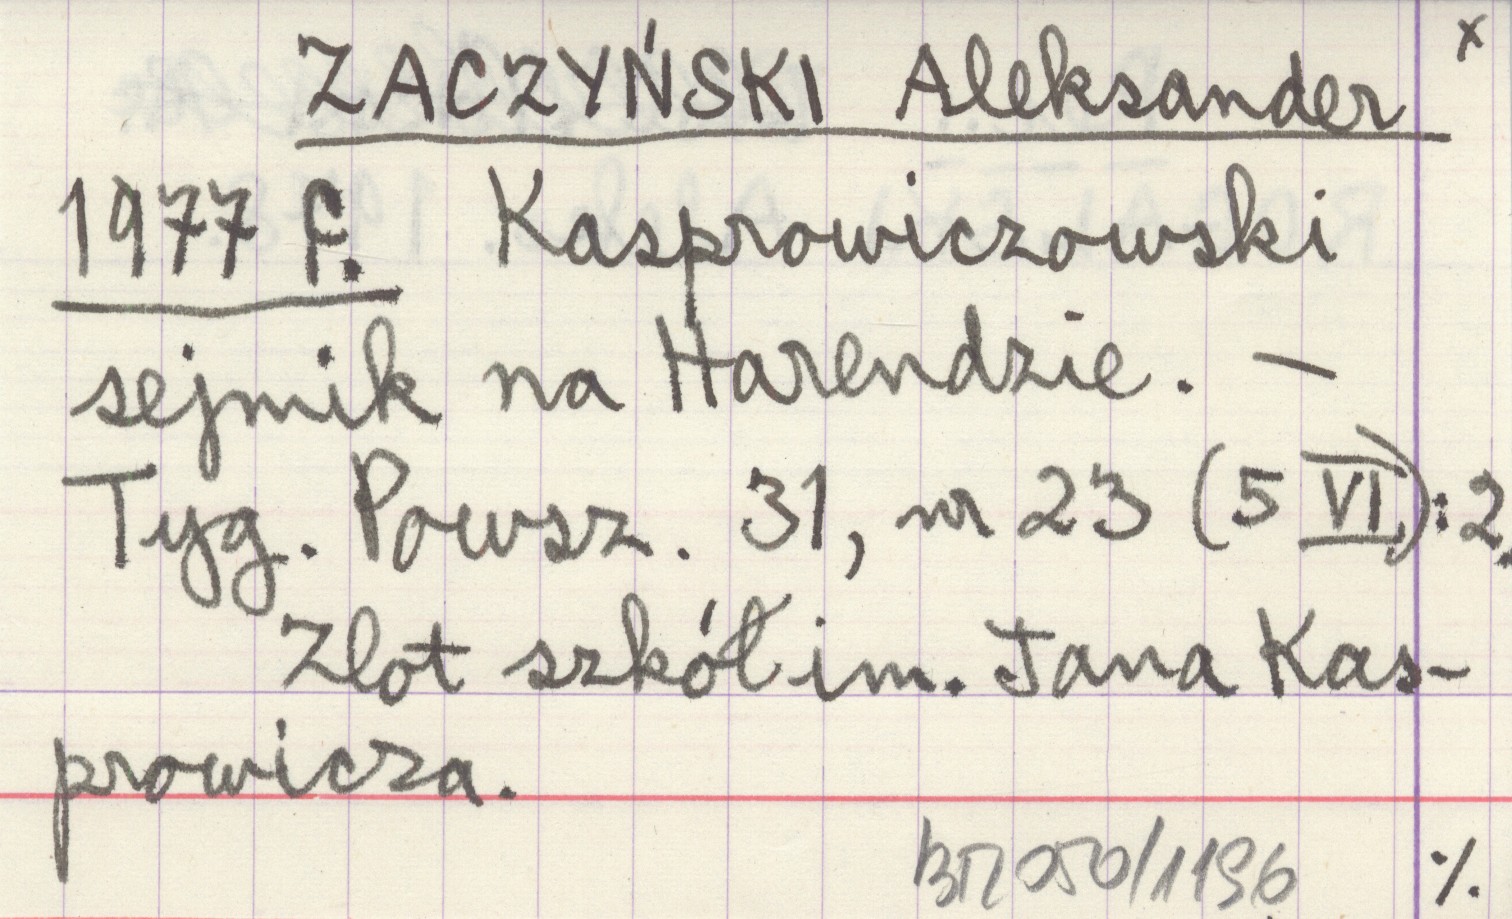 x
ZACZYŃSKI Aleksander
1977 f. Kasprowiczowski
sejmik na Harendzie. —
Tyg. Powsz. 31, nr 23 (5 VI): 2.
Zlot szkół im. Jana Kas-
prowicza.
050/1196 ./.